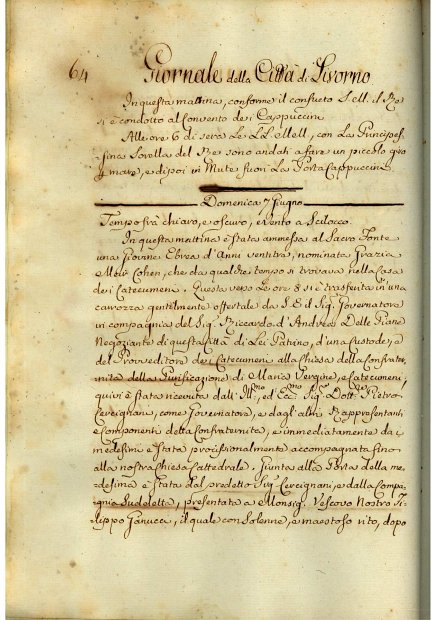 64
Giornale della Città di Livorno
In questa mattina, conforme il consueto S. M. il Re
si è condotto al Convento dei Cappuccini
Alle ore 6 di sera Le LL. MM, con La Principes-
sina Sorella del Re sono andati a fare un piccolo giro
p mare, e dipoi in Mute fuori La Porta Cappuccini
Domenica 7 Giugno
Tempo frà chiaro, e oscuro, e Vento a Scilocco.
In questa mattina è stata ammessa al Sacro Fonte
una Giovine Ebrea d'Anni ventitrè, nominata Grazia
Cohen, che da qualche tempo si trovava nella Casa
dei Catecumeni. Questa verso Le ore 8 si è trasferita in una
carrozza gentilmente offertale da S. E. il Sig. Governatore
in compagnia del Sig. Riccardo d'Andrea Delle Piane
Negoziante di questa Città di Lei Patrino, d'una Custode, e
del Provveditore dei Catecumeni alla Chiesa della Confrater-
nita della Purificazione di Maria Vergine, e Catecumeni,
quivi è stata ricevuta dall'Ill.mo, ed Ecc.mo Sig. Dott. Pietro
Cercignani, come Governatore, e dagl'altri Rappresentanti,
e Componenti detta Confraternita, e immediatamente dai
medesimi è stata processionalmente accompagnata fino
alla nostra Chiesa Cattedrale. Giunta alla Porta della me-
desima è stata dal predetto Sig. Cercignani, e dalla Compa-
gnia Suddetta, presentata a Monsig. Vescovo Nostro Fi-
lippo Ganucci, il quale con solenne, e maestoso rito, dopo